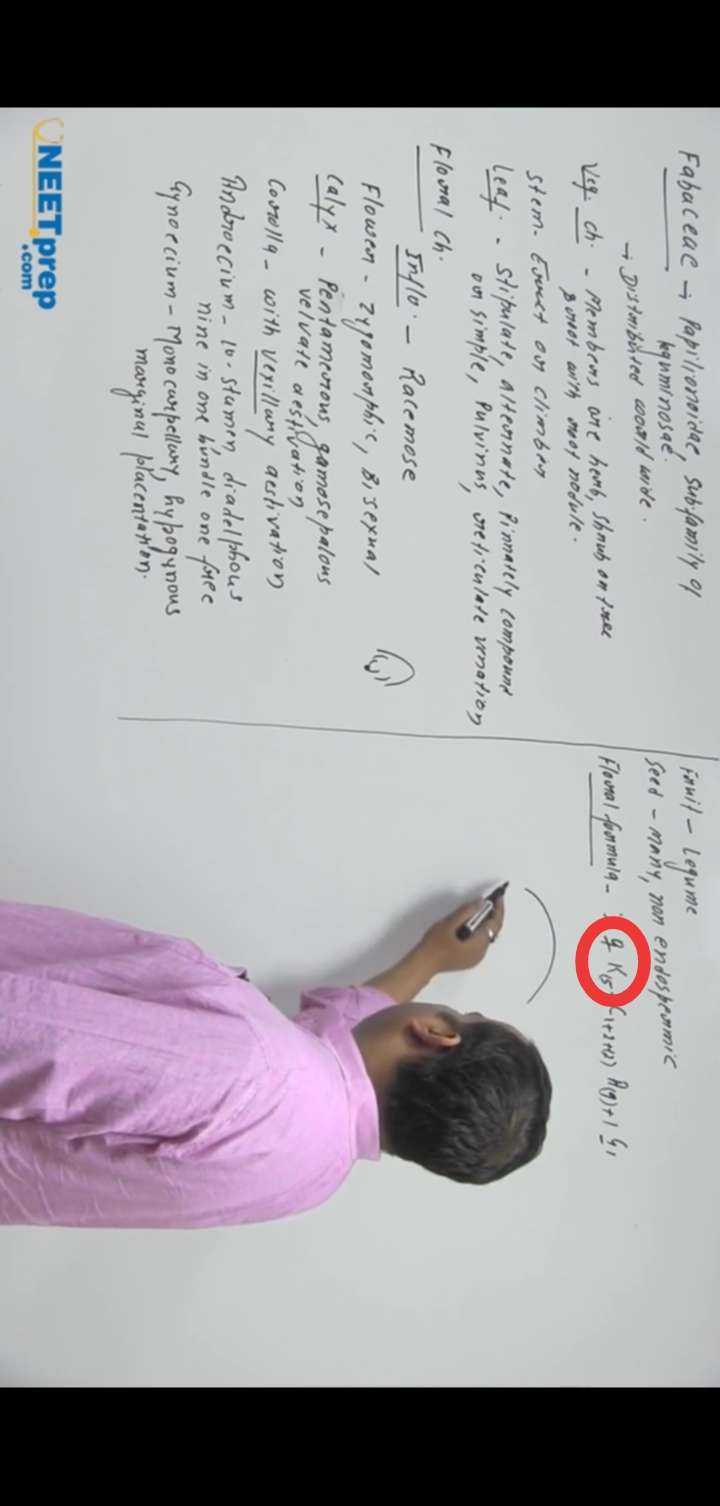 Fabaceae → Papilionoidae, subfamily of
leguminosae.
→ Distributed world wide.
Veg. ch. - Members are herb, shrub or tree
root with root nodule.
Stem - Erect or climber
Leaf. - Stipulate, alternate, Pinnately compound
or simple, Pulvinus, reticulate venation
Floral ch.
Inflo. - Racemose
Flower - zygomorphic, Bisexual
Calyx - Pentamerous, gamosepalous
velvate aestivation
Corolla - with vexillary aestivation
Androecium - 10 - stamen diadelphous
nine in one bundle one free
Gynoecium - Monocarpellary, hypogynous
marginal placentation.
Fruit - Legume
Seed - many, non endospermic
Floral formula -
NEETprep
.com